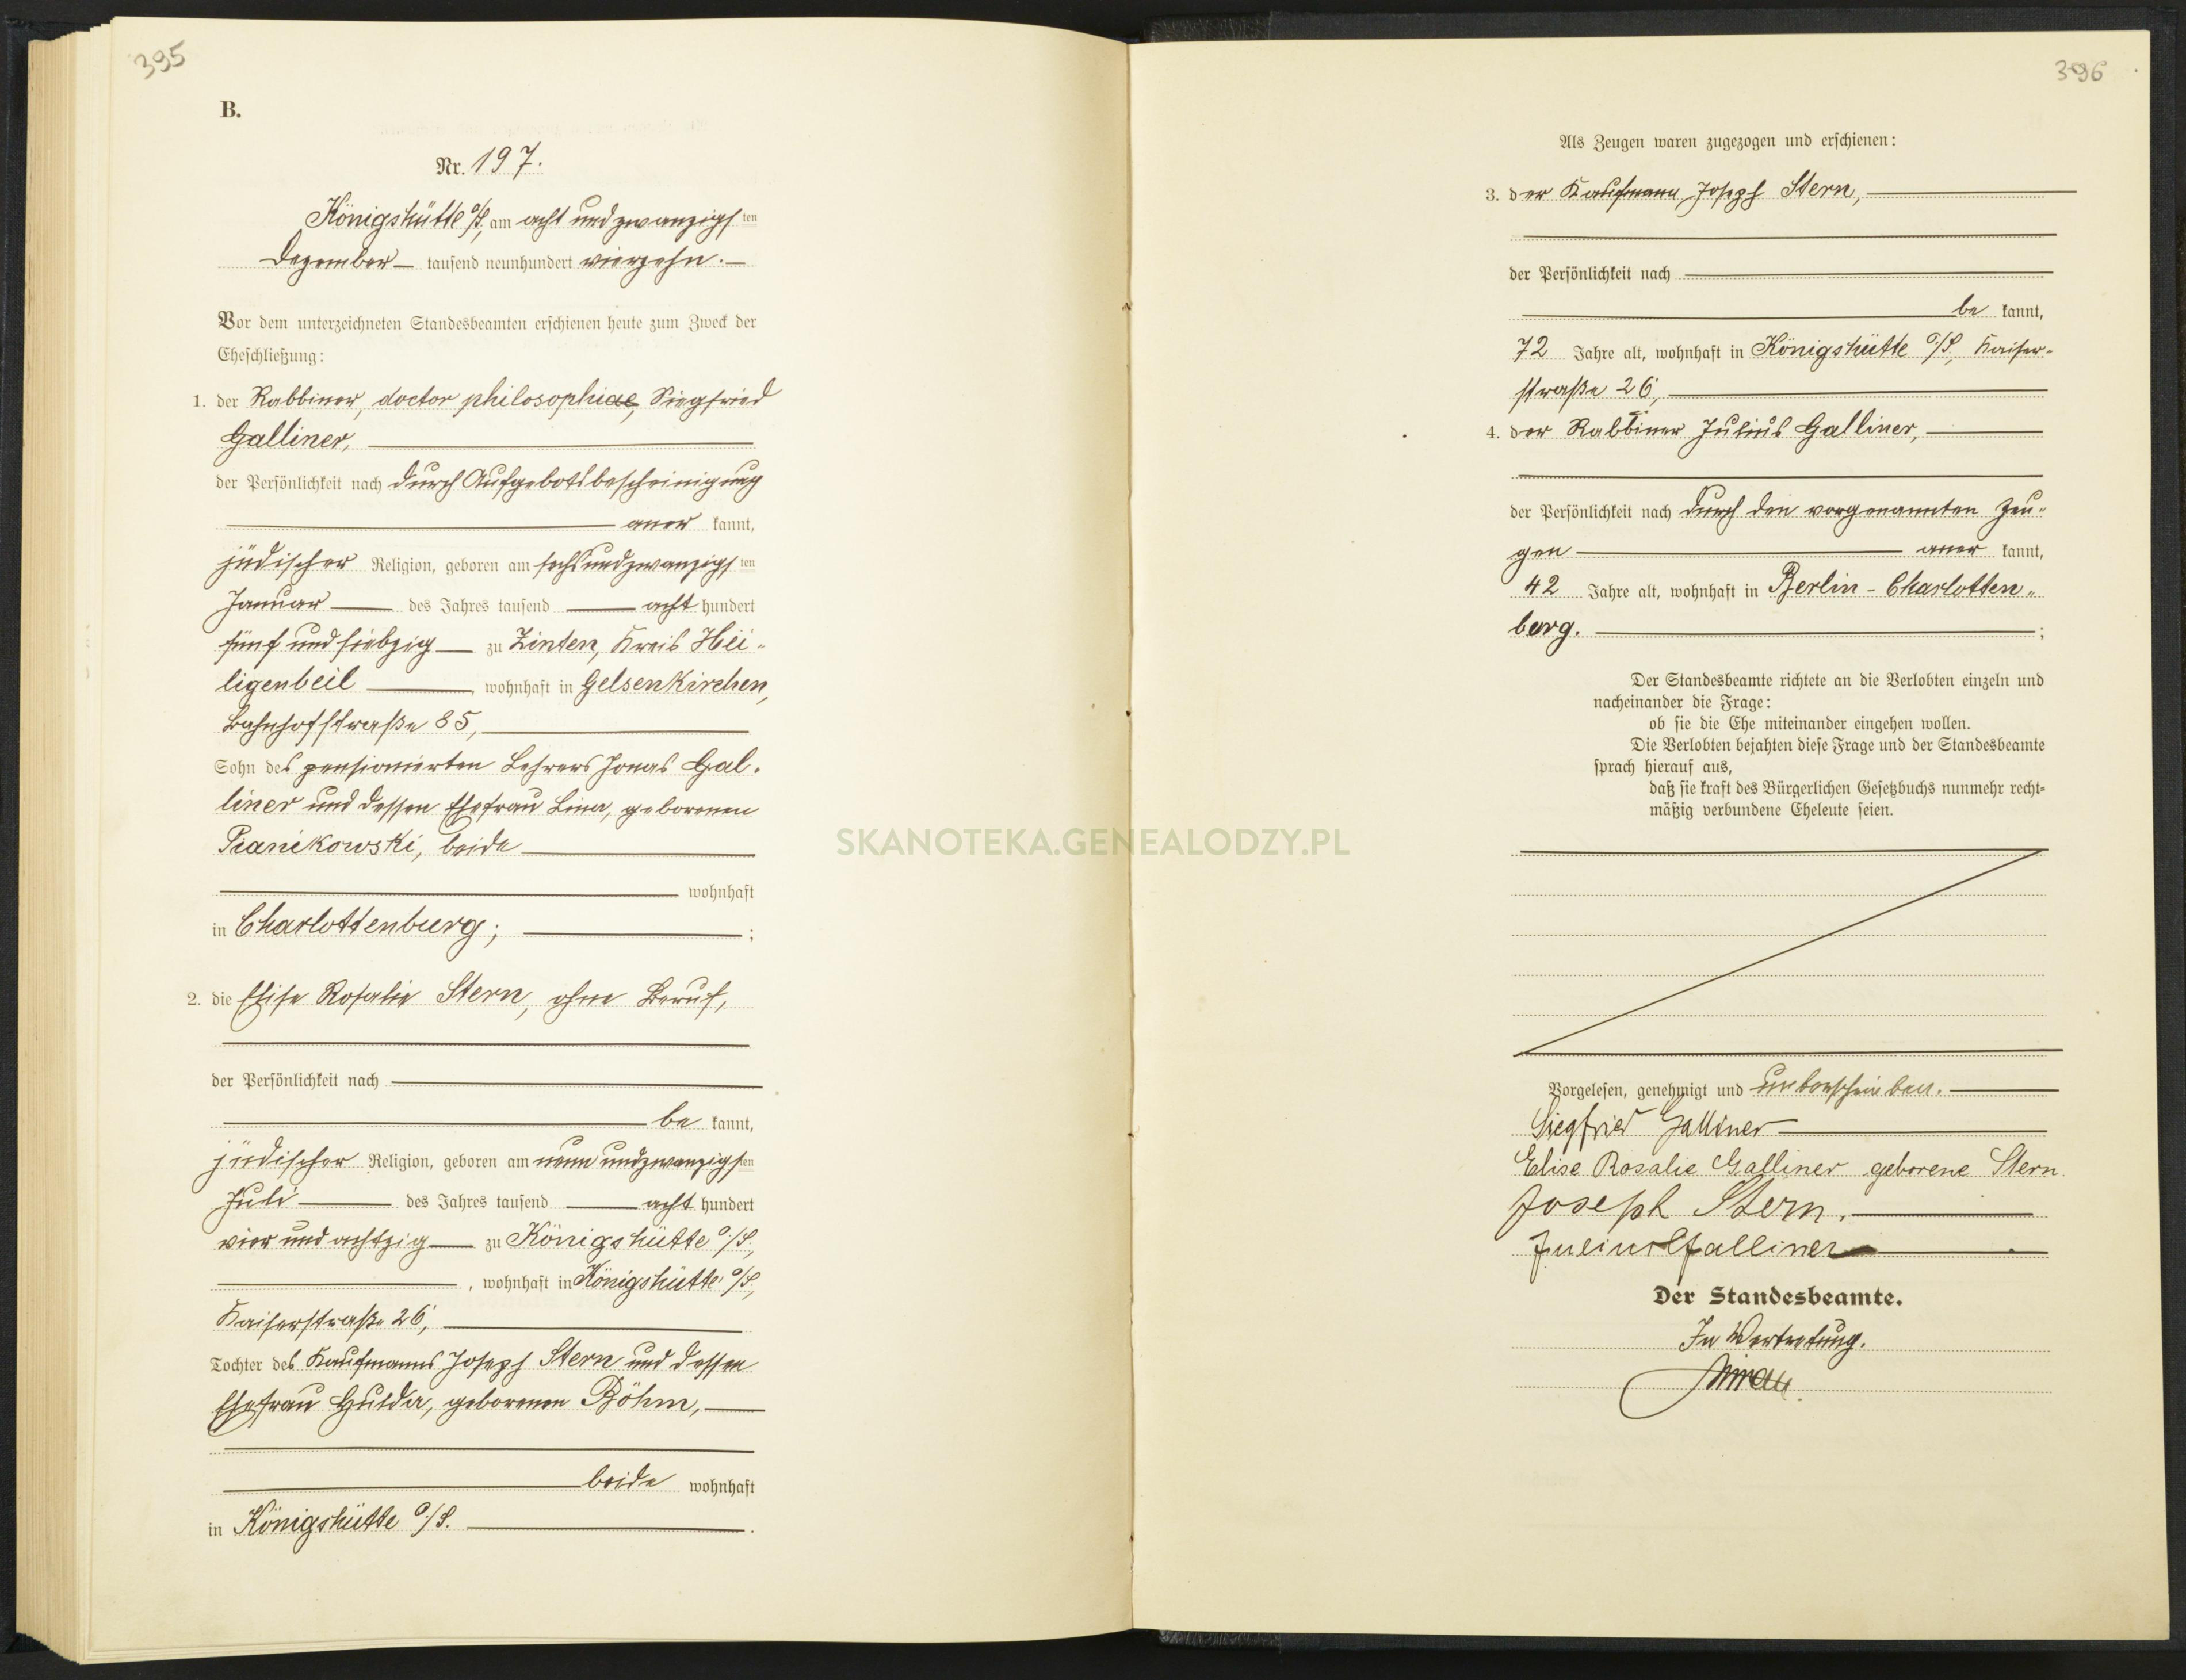 395
B.
Nr. 197.
Königshütte O/S., am acht und zwanzigsten
Dezember tausend neunhundert vierzehn.
Vor dem unterzeichneten Standesbeamten erschienen heute zum Zweck der
Eheschließung:
1. der Rabbiner, doctor philosophiae, Siegfried
Galliner,
der Persönlichkeit nach durch Aufgebotsbescheinigung
aner kannt,
jüdischer Religion, geboren am sechsundzwanzigsten
Januar des Jahres tausend acht hundert
fünf und siebzig zu Zinten, Kreis Hei-
ligenbeil, wohnhaft in Gelsenkirchen,
Bahnhofstraße 85,
Sohn des pensionierten Lehrers Jonas Gal-
liner und dessen Ehefrau Lina, geborenen
Pianikowski, beide
wohnhaft
in Charlottenburg; ;
2. die Elise Rosalie Stern, ohne Beruf,
der Persönlichkeit nach
be kannt,
jüdischer Religion, geboren am neun und zwanzigsten
Juli des Jahres tausend acht hundert
vier und achtzig zu Königshütte O/S.,
, wohnhaft in Königshütte O/S.,
Kaiserstraße 26,
Tochter des Kaufmanns Joseph Stern und dessen
Ehefrau Hulda, geborenen Böhm,
beide wohnhaft
in Königshütte O/S. .
396
Als Zeugen waren zugezogen und erschienen:
3. der Kaufmann Joseph Stern,
der Persönlichkeit nach
be kannt,
72 Jahre alt, wohnhaft in Königshütte O/S., Kaiser-
straße 26,
4. der Rabbiner Julius Galliner,
der Persönlichkeit nach durch den vorgenannten Zeu-
gen aner kannt,
42 Jahre alt, wohnhaft in Berlin-Charlotten-
burg. ;
Der Standesbeamte richtete an die Verlobten einzeln und
nacheinander die Frage:
ob sie die Ehe miteinander eingehen wollen.
Die Verlobten bejahten diese Frage und der Standesbeamte
sprach hierauf aus,
daß sie kraft des Bürgerlichen Gesetzbuchs nunmehr recht-
mäßig verbundene Eheleute seien.
Vorgelesen, genehmigt und unterschrieben.
Siegfried Galliner
Elise Rosalie Galliner geborene Stern.
Joseph Stern.
Julius Galliner
Der Standesbeamte.
In Vertretung.
SKANOTEKA.GENEALODZY.PL